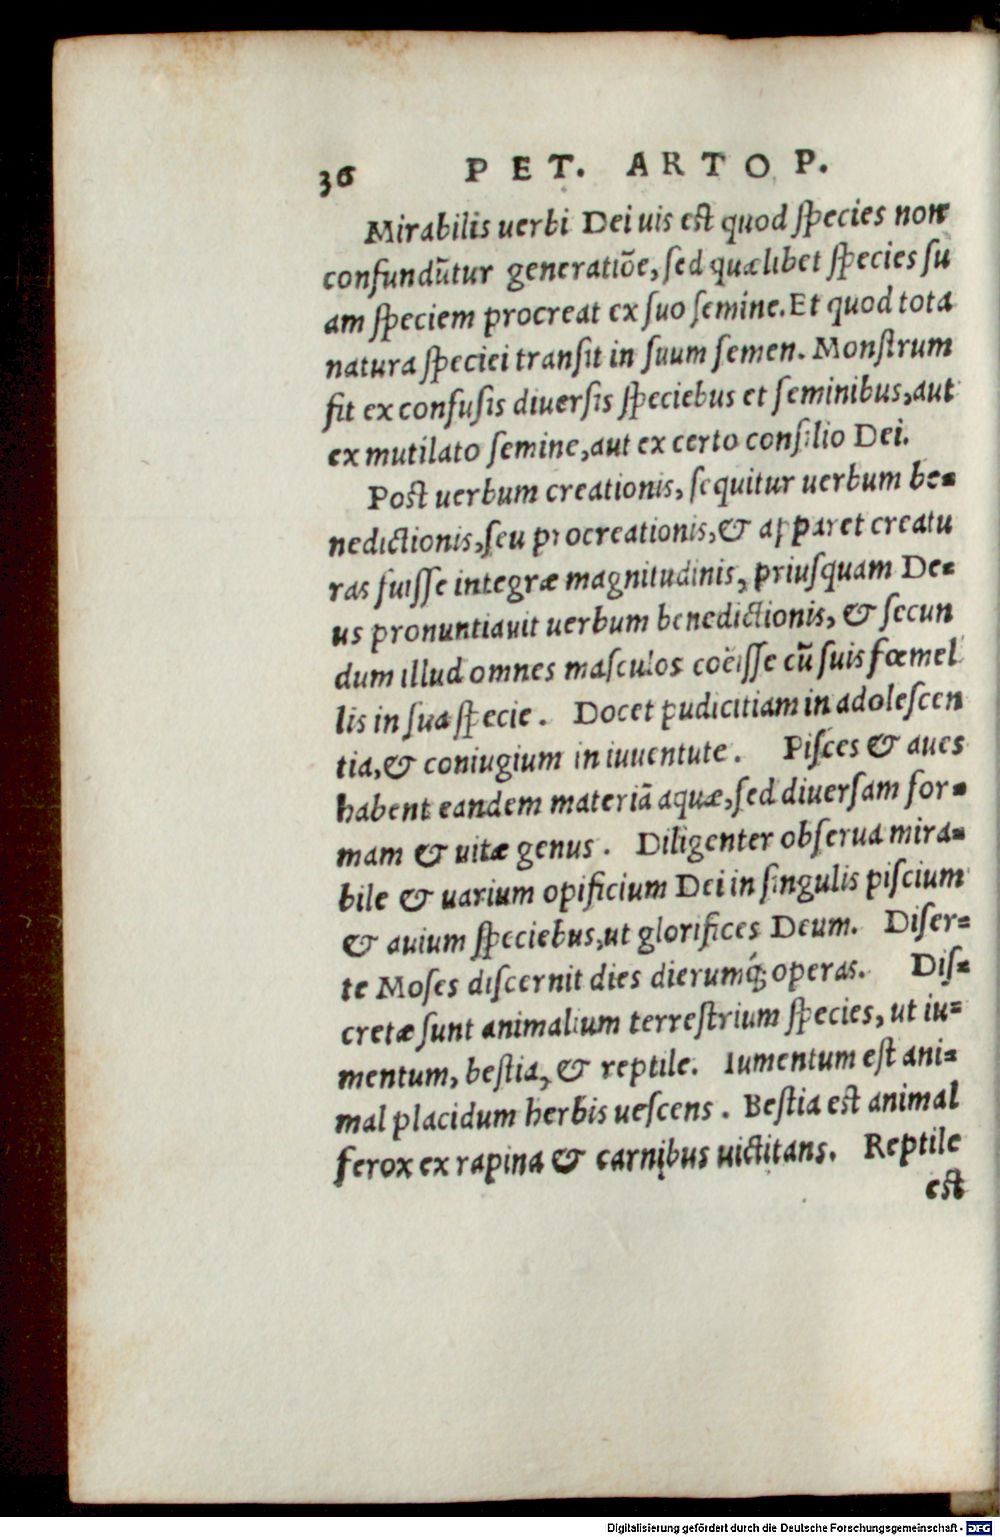 36 PET. ARTOP.
Mirabilis uerbi Dei uis est quod species non
confundũtur generatiõe, sed quælibet species su
am speciem procreat ex suo semine. Et quod tota
natura speciei transit in suum semen. Monstrum
fit ex confusis diuersis speciebus et seminibus, aut
ex mutilato semine, aut ex certo consilio Dei.
Post uerbum creationis, sequitur uerbum be-
nedictionis, seu procreationis, & apparet creatu
ras fuisse integræ magnitudinis, priusquam De-
us pronuntiauit uerbum benedictionis, & secun
dum illud omnes masculos coëisse cũ suis fœmel
lis in sua specie. Docet pudicitiam in adolescen
tia, & coniugium in iuuentute. Pisces & aues
habent eandem materiã aquæ, sed diuersam for-
mam & uitæ genus. Diligenter obserua mira-
bile & uarium opificium Dei in singulis piscium
& auium speciebus, ut glorifices Deum. Diser-
te Moses discernit dies dierumq́; operas. Dis-
cretæ sunt animalium terrestrium species, ut iu-
mentum, bestia, & reptile. Iumentum est ani-
mal placidum herbis uescens. Bestia est animal
ferox ex rapina & carnibus uictitans. Reptile
est
Digitalisierung gefördert durch die Deutsche Forschungsgemeinschaft - DFG